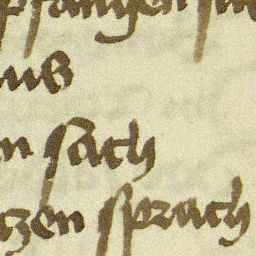 pfangen sin
us
n sach
tzen sprach